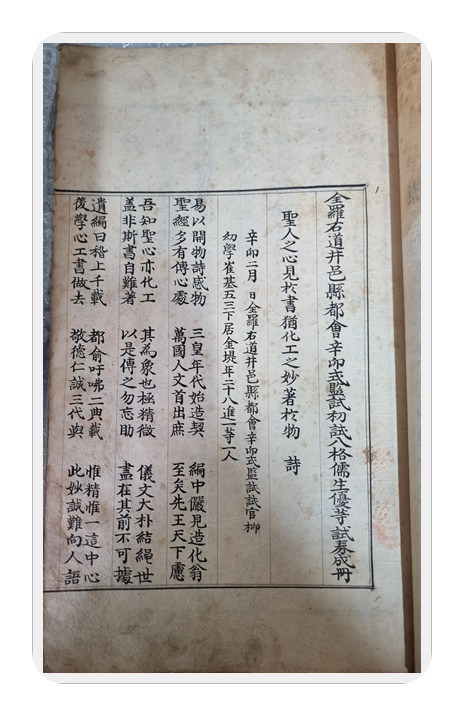 全羅右道井邑縣都會辛卯式監試初試入格儒生優等試券成冊
聖人之心見於書猶化工之妙著於物 詩
辛卯二月 日全羅右道井邑縣都會辛卯式監試試官柳
幼學崔基五三下居金堤年二十八進一等一人
易以開物詩感物 三皇年代始造契 編中儼見造化翁
聖經多有傳心處 萬國人文首出庶 至矣先王天下慮
吾知聖心亦化工 其爲衆也極精微 儀文大朴結繩世
盖非斯書自難著 以是傳之勿忘助 盡在其前不可據
遺編曰稽上千載 都俞吁咈二典載 惟精惟一這中心
後學心工書做去 敬德仁誠三代與 此妙誠難向人語